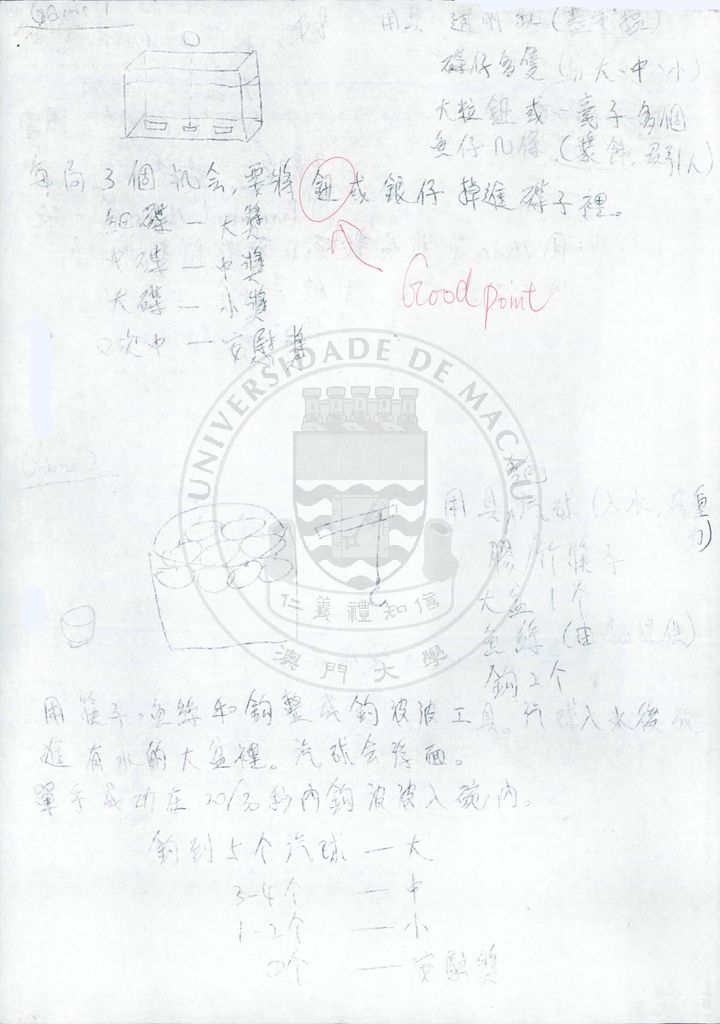 Game 1
用具 透明缸
碟仔多隻 (分大、中、小)
大粒鈕或一毫子多個
魚仔几條 (裝飾, 吸引人)
每局3個机会, 要將鈕或銀仔掉進碟子裡。
細碟 — 大獎
中碟 — 中獎
大碟 — 小獎
0次中 — 安慰獎
Good point
UNIVERSIDADE DE MACAU
仁義禮知信
澳門大學
Game 2
用具 汽球 (入水, 有重力)
膠/竹筷子
大盆1个
魚絲 (由
鈎2个
用筷子、魚絲和鈎整成釣波波工具。汽球入水後放
進有水的大盆裡。汽球会浮面。
單手成功在20/30秒內鈎波波入碗內。
釣到5个汽球 — 大
3-4个 — 中
1-2个 — 小
0个 — 安慰獎